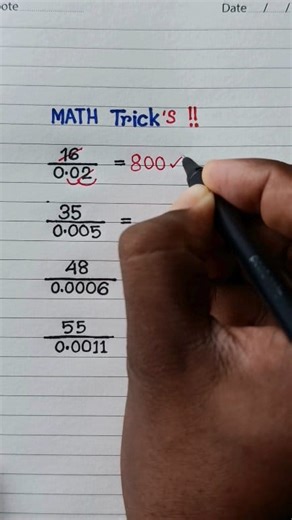 ote Date / /
MATH Trick's !!
16/0.02 = 800 ✓
35/0.005 =
48/0.0006
55/0.0011